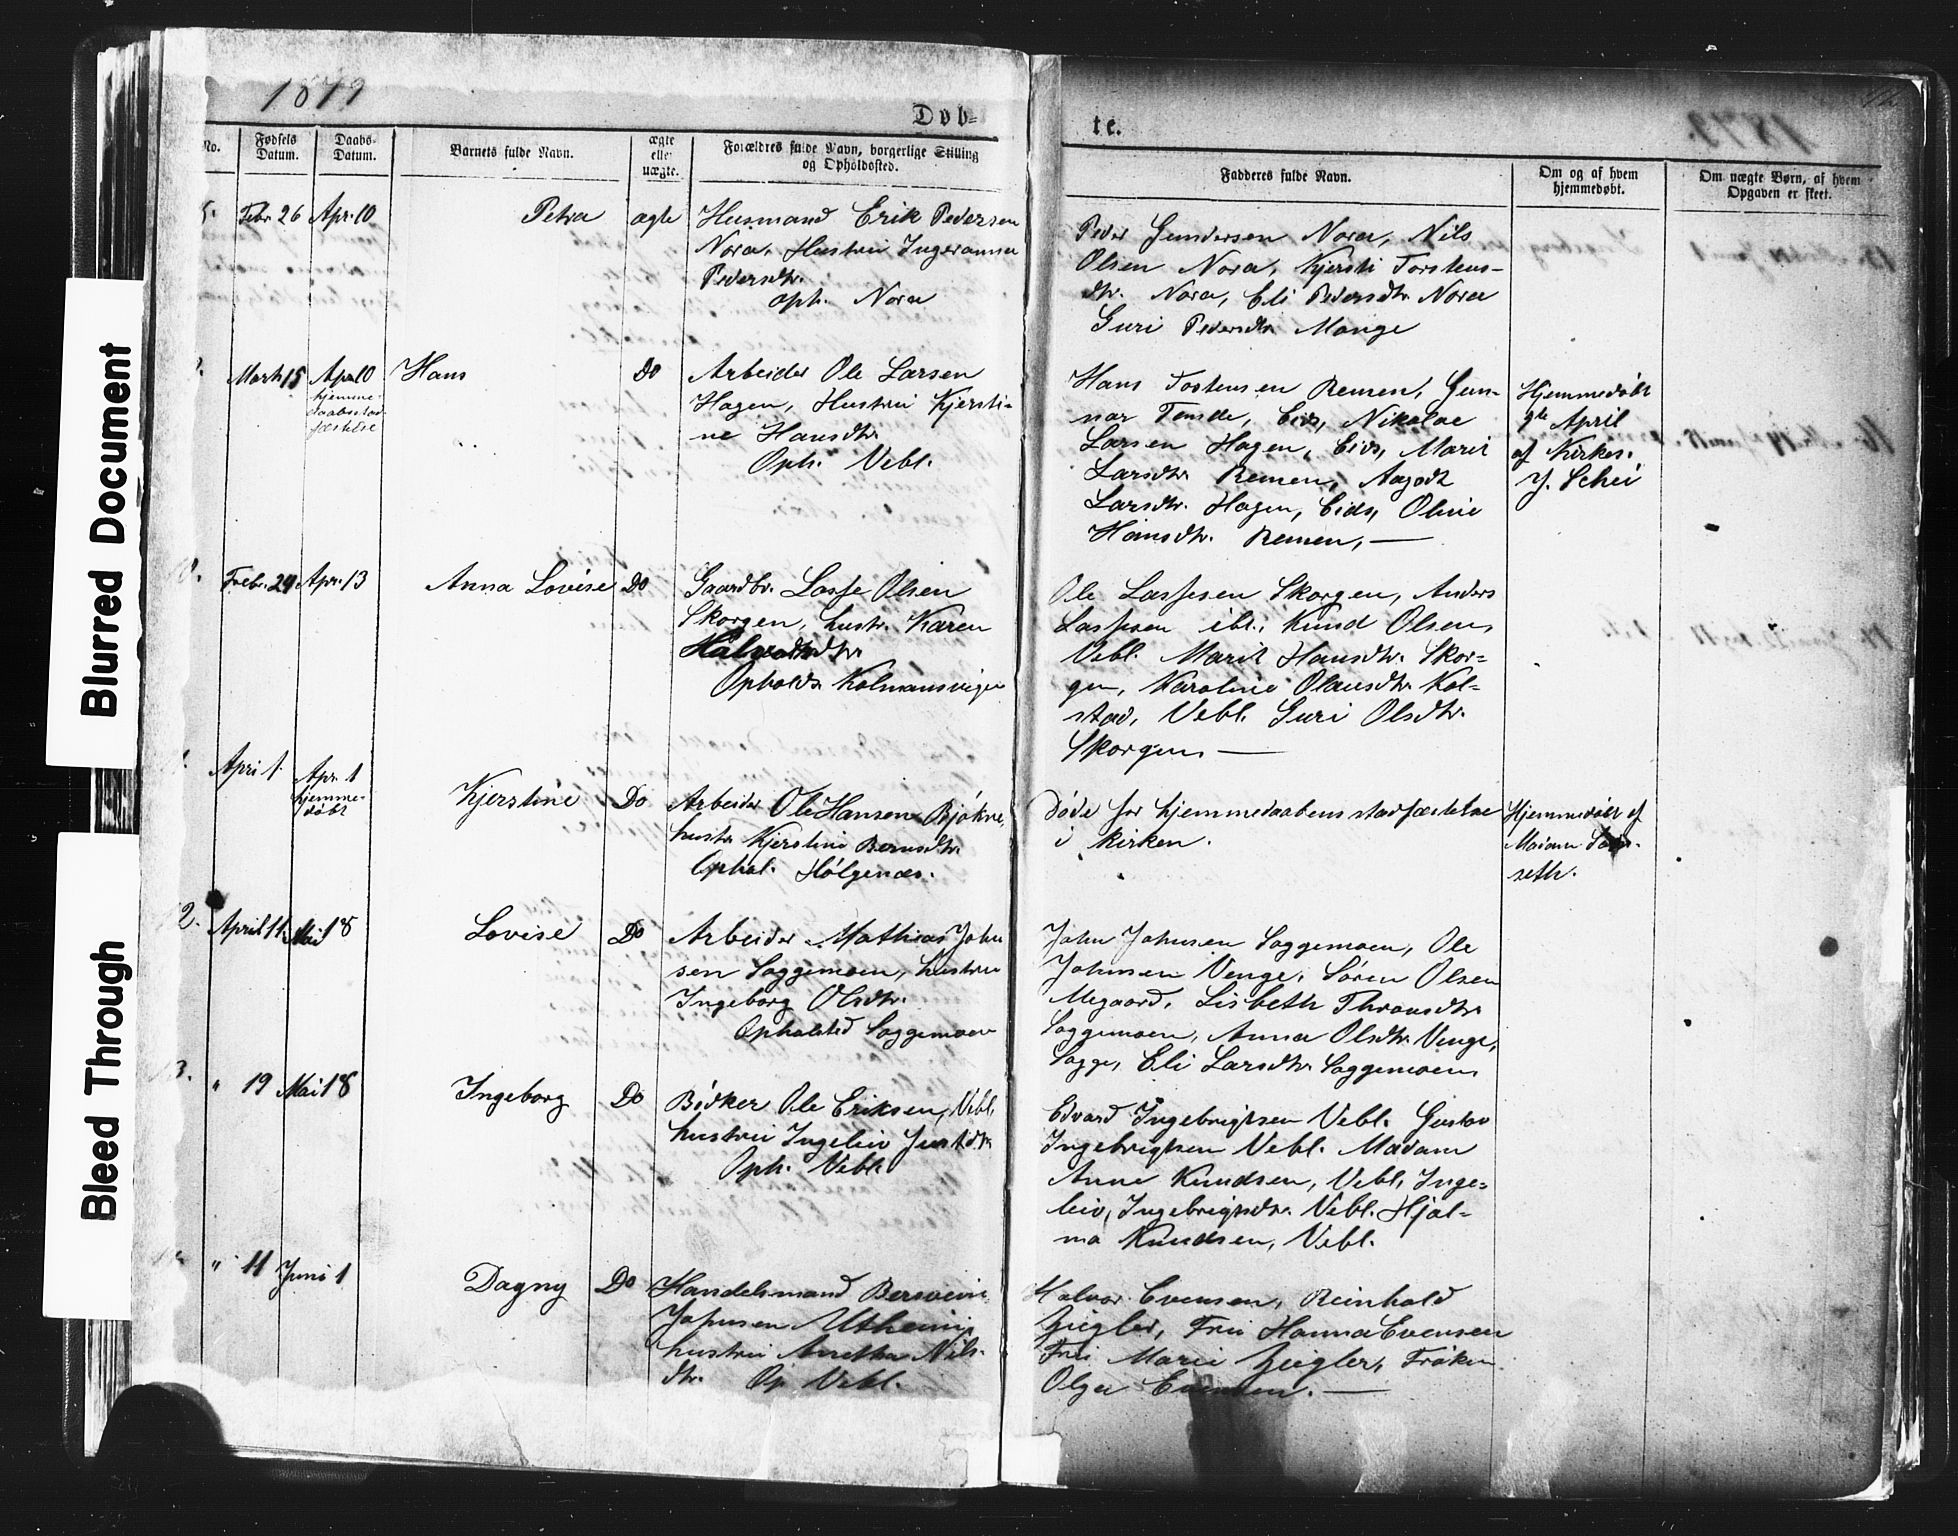 1879
Døb-
te.
1879.
No.
Fødsels Datum.
Daabs-Datum.
Barnets fulde Navn.
ægte eller uægte.
Forældres fulde Navn, borgerlige Stilling og Opholdssted.
Fadderes fulde Navn.
Om og af hvem hjemmedøbt.
Om uægte Børn, af hvem Opgaven er skeet.
Febr 26 Apr. 10 Petra ægte
Husmand Erik Pedersen
Nora, Hustru Ingeranna
Pedersdtr.
Oph. Nora
Peder Gundersen Nora, Nils
Olsen Nora, Kjersti Torstens-
dtr. Nora, Eli Pedersdtr. Nora
Guri Pedersdtr. Monge
Marts 15 Apr 10 Hans Do
hjemme-
daabsstad-
fæstelse
Arbeider Ole Larsen
Hagen, Hustru Kjersti-
ne Hansdtr.
Oph. Vebl.
Hans Tostensen Remen, Gun-
nar Eids, Nikolae
Larsen Hagen, Eids, Marit
Larsdtr. Remen,
Larsdtr. Hagen, Eids, Oline
Hansdtr. Remen, —
Hjemmedøbt
9de April
af Kirkes.
J. Schei
Febr. 24 Apr. 13 Anna Lovise Do
Gaardbr. Lasse Olsen
Skorgen, hustr. Karen
Opholds. Kolmansvigen
Ole Lassesen Skorgen, Anders
Lassesen ibl., Knud Olsen,
Vebl. Marit Hansdtr. Skor-
gen, Karoline Olausdtr. Kol-
stad, Vebl. Guri Olsdtr.
Skorgen, —
Apri 1. Apr. 1 Kjerstine Do
hjemme-
døbt
Arbeider Ole Hansen
hustr. Kjerstine Berntsdtr.
Ophol. Holgenæs.
Døde før hjemmedaabens stadfæstelse
i kirken.
Hjemmedøbt af
seth.
2. April 11. Mai 18 Lovise Do
Arbeider Mathias John
sen Soggemoen, hustru
Ingeborg Olsdtr.
Opholsted Soggemoen
John Johnsen Soggemoen, Ole
Johnsen Venge, Søren Olsen
Megaard, Lisbeth Thronsdtr.
Soggemoen, Anna Olsdtr. Venge,
Sogge, Eli Larsdtr. Soggemoen,
3. " 19 Mai 18 Ingeborg Do
Bødker Ole Eriksen, Vebl.
hustru Ingeleiv
Oph. Vebl.
Edvard Ingebrigtsen Vebl. Gustav
Ingebrigtsen Vebl. Madam
Anne Knudsen, Vebl, Inge-
leiv, Ingebrigtsdtr. Vebl. Hjal-
ma Knudsen, Vebl.
" 11 Juni 1 Dagny Do
Handelsmand
Johnsen Utheim,
hustru Nils-
dtr. Op. Vebl.
Halvor Evensen, Reinhold
Ziegler, Fru Hanna Evensen
Fru Marie Ziegler, Frøken
Olga Evensen. —
Blurred Document
Bleed Through